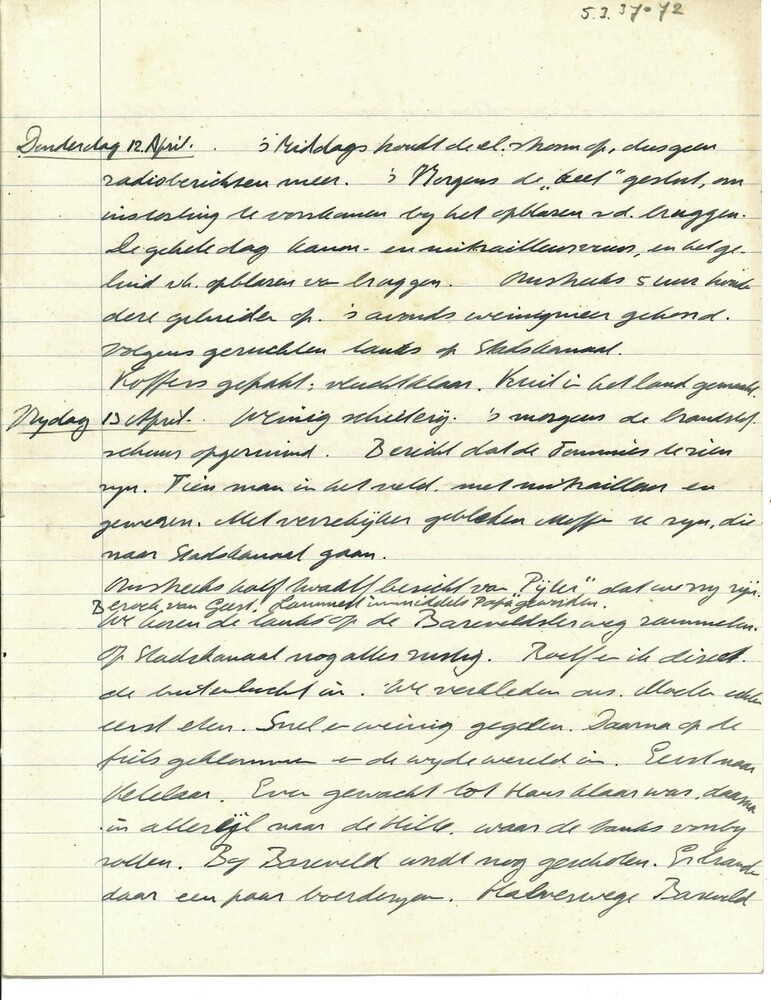 5.3.37.72
Donderdag 12 April. 's Middags houdt de el. stroom op, dus geen
radioberichten meer. 's Morgens de „beet" gestut, om
instorting te voorkomen by het opblazen v.d. bruggen.
De gehele dag kanon- en mitrailleurvuur, en het ge-
luid v.h. opblazen van bruggen. Omstreeks 5 uur houden
deze geluiden op. 's avonds weinig meer gehoord.
Volgens geruchten tanks op Stadskanaal.
Koffers gepakt; vluchtklaar. in het land gemaakt.
Vrydag 13 April. Weinig schieterij. 's morgens de brandstof
schuur opgeruimd. Bericht dat de Tommies te zien
zyn. Tien man in het veld met mitrailleur en
geweren. Met verrekijker gebleken Moffen te zyn, die
naar Stadskanaal gaan.
Omstreeks half twaalf bericht van "Pyler" dat we vry zijn.
Bezoek van Geert. Lammert inmiddels "Papa" geworden.
We horen de tanks op de Barevelderweg rammelen.
Op Stadskanaal nog alles rustig. Roelf en ik direct
de buitenlucht in. We verkleden ons. Moeten echter
eerst eten. Snel en weinig gegeten. Daarna op de
fiets geklommen en de wyde wereld in. Eerst naar
Ketelaar. Even gewacht tot Hans klaar was, daarna
in allerijl naar de Hilte, waar de tanks voorby
rollen. By Bareveld wordt nog geschoten. Er branden
daar een paar boerderyen. Halverwege Bareveld